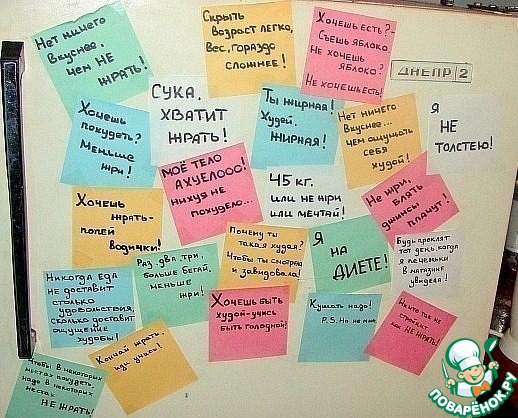 Нет ничего
вкуснее,
чем НЕ
ЖРАТЬ!
Скрыть
возраст легко,
вес, гораздо
сложнее!
Хочешь есть?-
Съешь яблоко.
Не хочешь
яблоко?
Не хочешь есть!
ДНЕПР 2
Хочешь
похудеть?
Меньше
жри!
СУКА,
ХВАТИТ
ЖРАТЬ!
Ты жирная!
Худей,
ЖИРНАЯ!
Нет ничего
Вкуснее...
чем ощущать
себя
худой!
Я
НЕ
ТОЛСТЕЮ!
Хочешь
жрать-
попей
водички!
МОЁ ТЕЛО
АХУЕЛООО!
нихуя не
похудело...
45 кг.
или не жри
или мечтай!
Не жри,
БЛЯТЬ
джинсы
плачут!
Никогда Еда
не доставит
столько
удовольствия,
сколько доставит
ощущение
худобы!
Раз, два, три,
больше бегай,
меньше
жри!
Почему ты
такая худая?
Чтобы ты смотрела
и завидовала!
Я
НА
ДИЕТЕ!
Будь проклят
тот день, когда
я печеньки
в магазине
увидела!
Чтобы в некоторых
местах похудеть,
надо в некоторых
местах
НЕ ЖРАТЬ!
Кончай жрать,
иди учись!
Хочешь быть
худой-учись
быть голодной!
Кушать надо!
P.S. Но не мне.
Никто так не
стройнит,
как НЕ ЖРАТЬ!
ПОВАРЁНОК.РУ